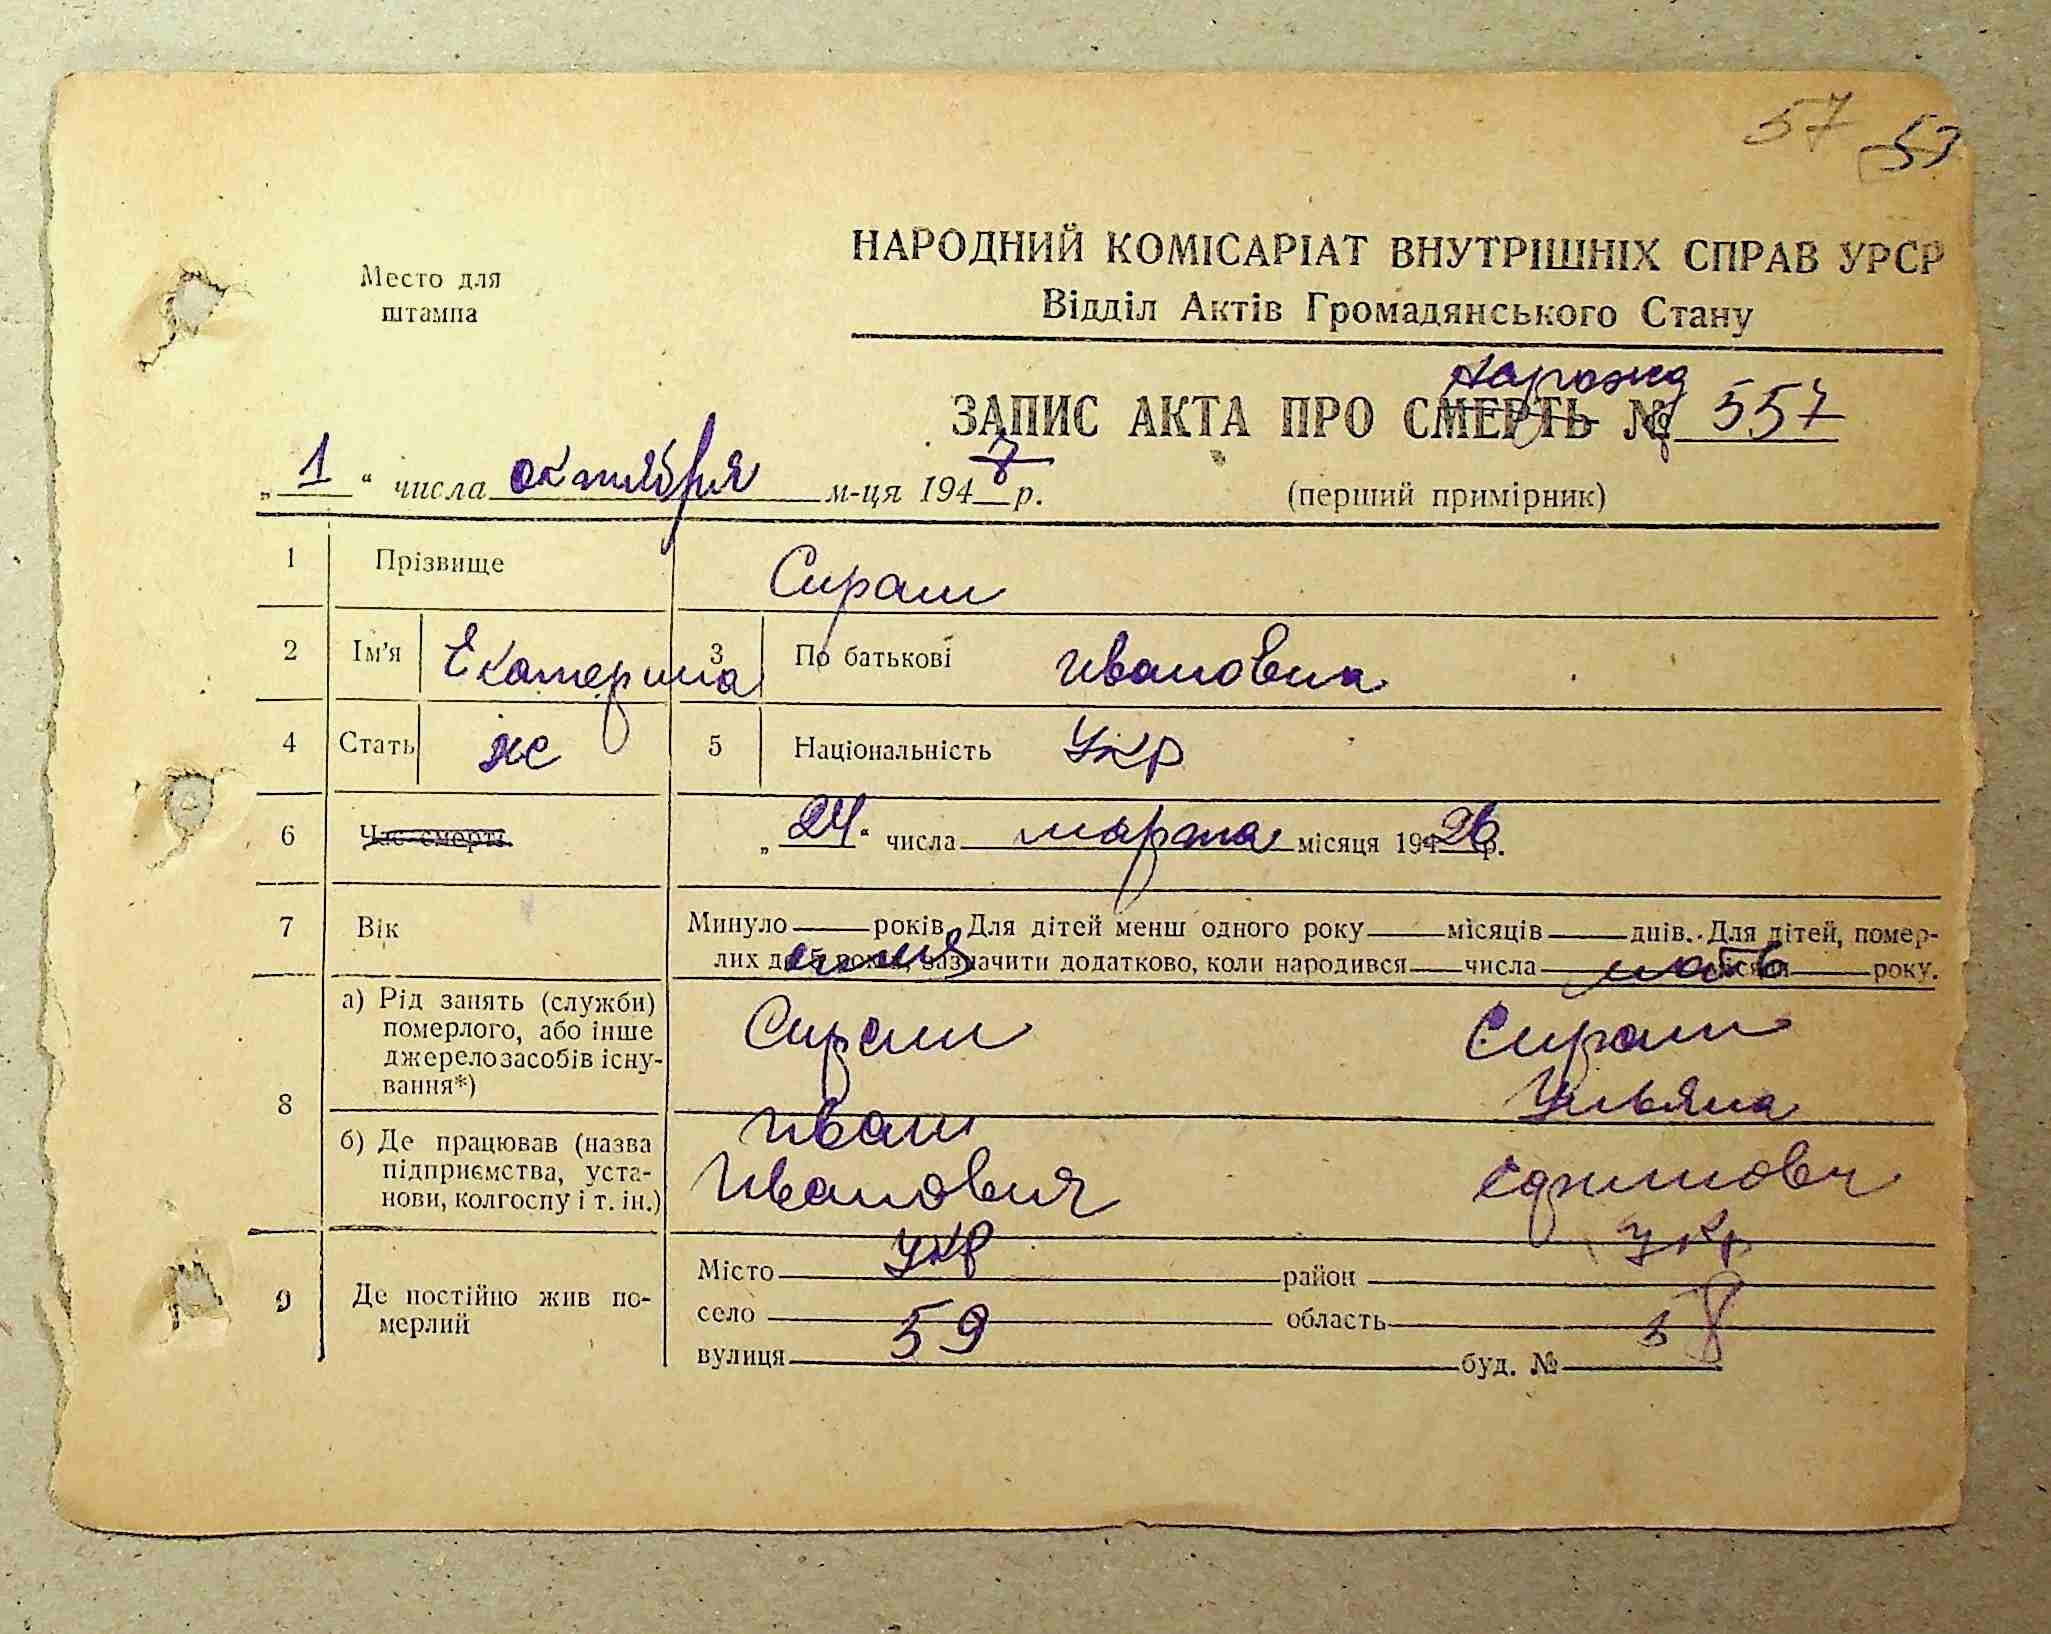 57 53
НАРОДНИЙ КОМІСАРІАТ ВНУТРІШНІХ СПРАВ УРСР
Место для
штампа
Відділ Актів Громадянського Стану
нарожд
ЗАПИС АКТА ПРО СМЕРТЬ № 557
„ 1 “ числа октября м-ця 194 7 р. (перший примірник)
1 Прізвище Сираш
2 Ім'я Екатерина 3 По батькові Ивановна
4 Стать же 5 Національність Укр
6 Час смерті „ 24 “ числа марта місяця 19 26 р.
7 Вік Минуло ___ років. Для дітей менш одного року ___ місяців ___ днів. Для дітей, помер-
лих до 5 років, зазначити додатково, коли народився ___ числа ___ місяця ___ року.
отца мать
8 а) Рід занять (служби)
померлого, або інше
джерело засобів існу-
вання*)
Сираш Сираш
Ульяна
б) Де працював (назва
підприємства, уста-
нови, колгоспу і т. ін.)
Иван
Иванович
укр укр
9 Де постійно жив по-
мерлий
Місто ___ район ___
село ___ область ___
59 58
вулиця ___ буд. № ___